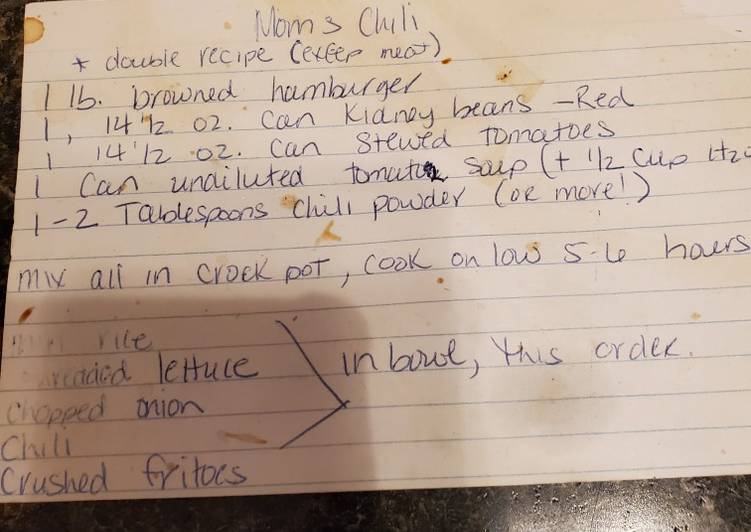 Mom's Chili
* double recipe (except meat)
1 lb. browned hamburger
1, 14 1/2 oz. can Kidney beans - Red
1 14 1/2 oz. can Stewed tomatoes
1 Can undiluted tomato soup (+ 1/2 cup H2O
1-2 Tablespoons chili powder (or more!)
mix all in crock pot, cook on low 5-6 hours
rice
lettuce
in bowl, this order.
Chopped onion
Chili
Crushed fritoes